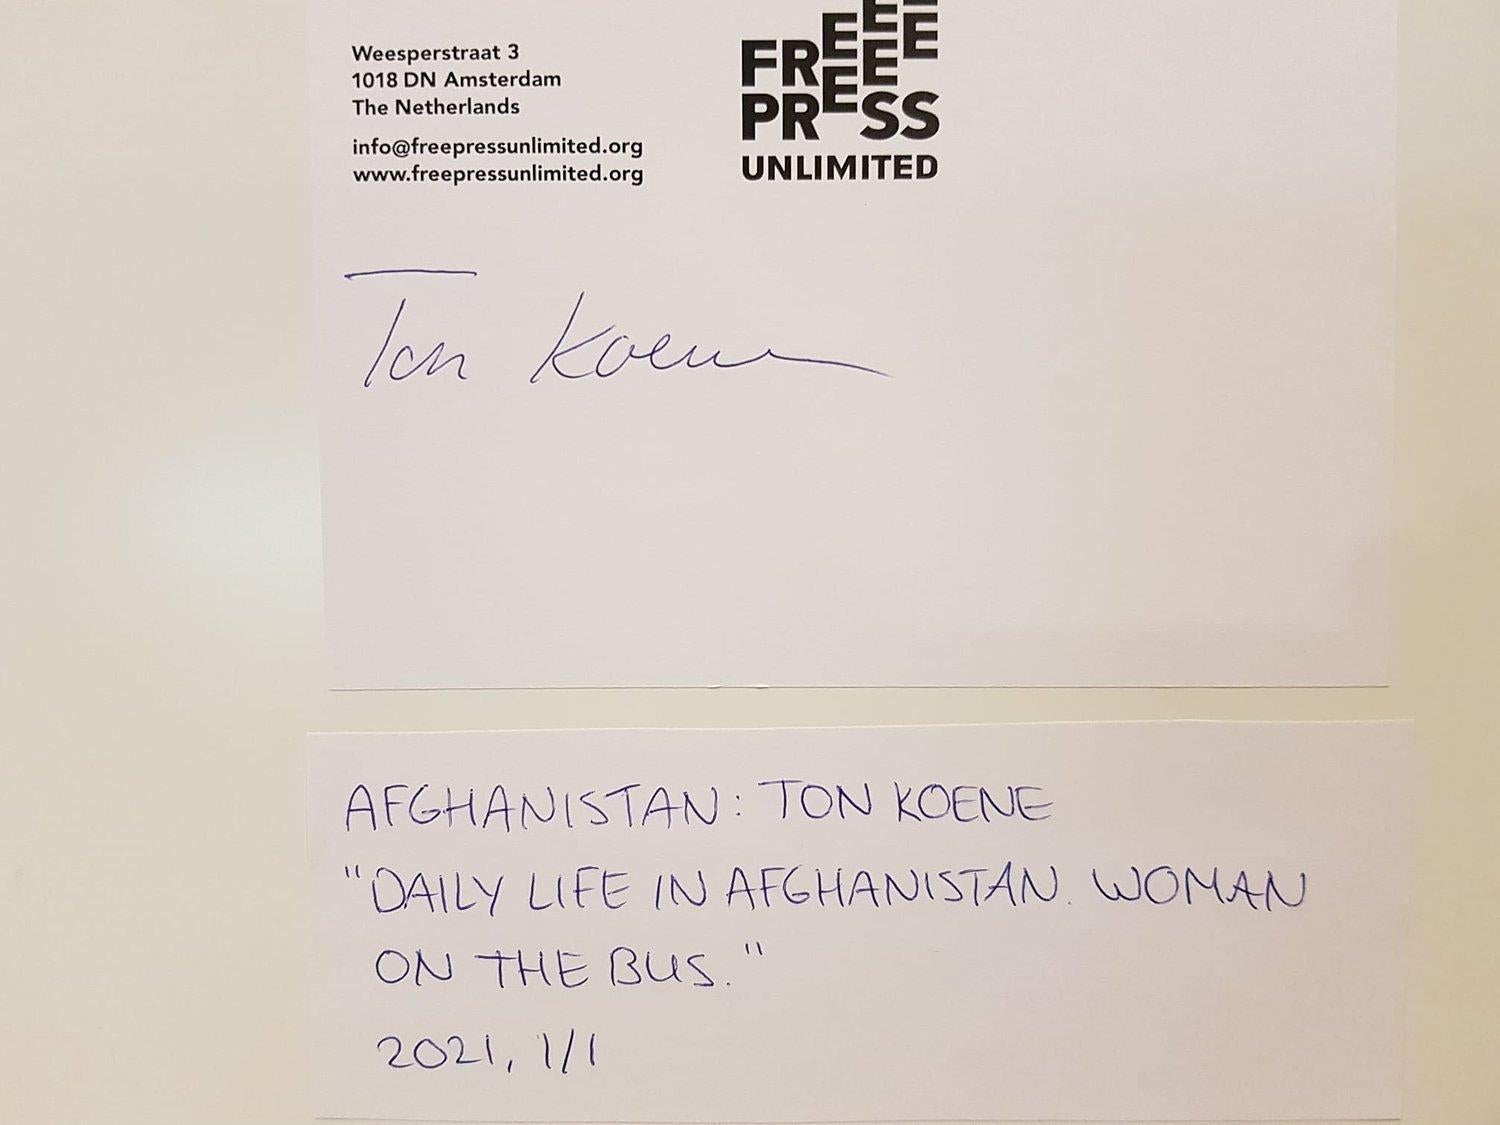 Weesperstraat 3
1018 DN Amsterdam
The Netherlands
info@freepressunlimited.org
www.freepressunlimited.org
FREE
PRESS
UNLIMITED
Ton Koene
AFGHANISTAN: TON KOENE
"DAILY LIFE IN AFGHANISTAN. WOMAN
ON THE BUS."
2021, 1/1